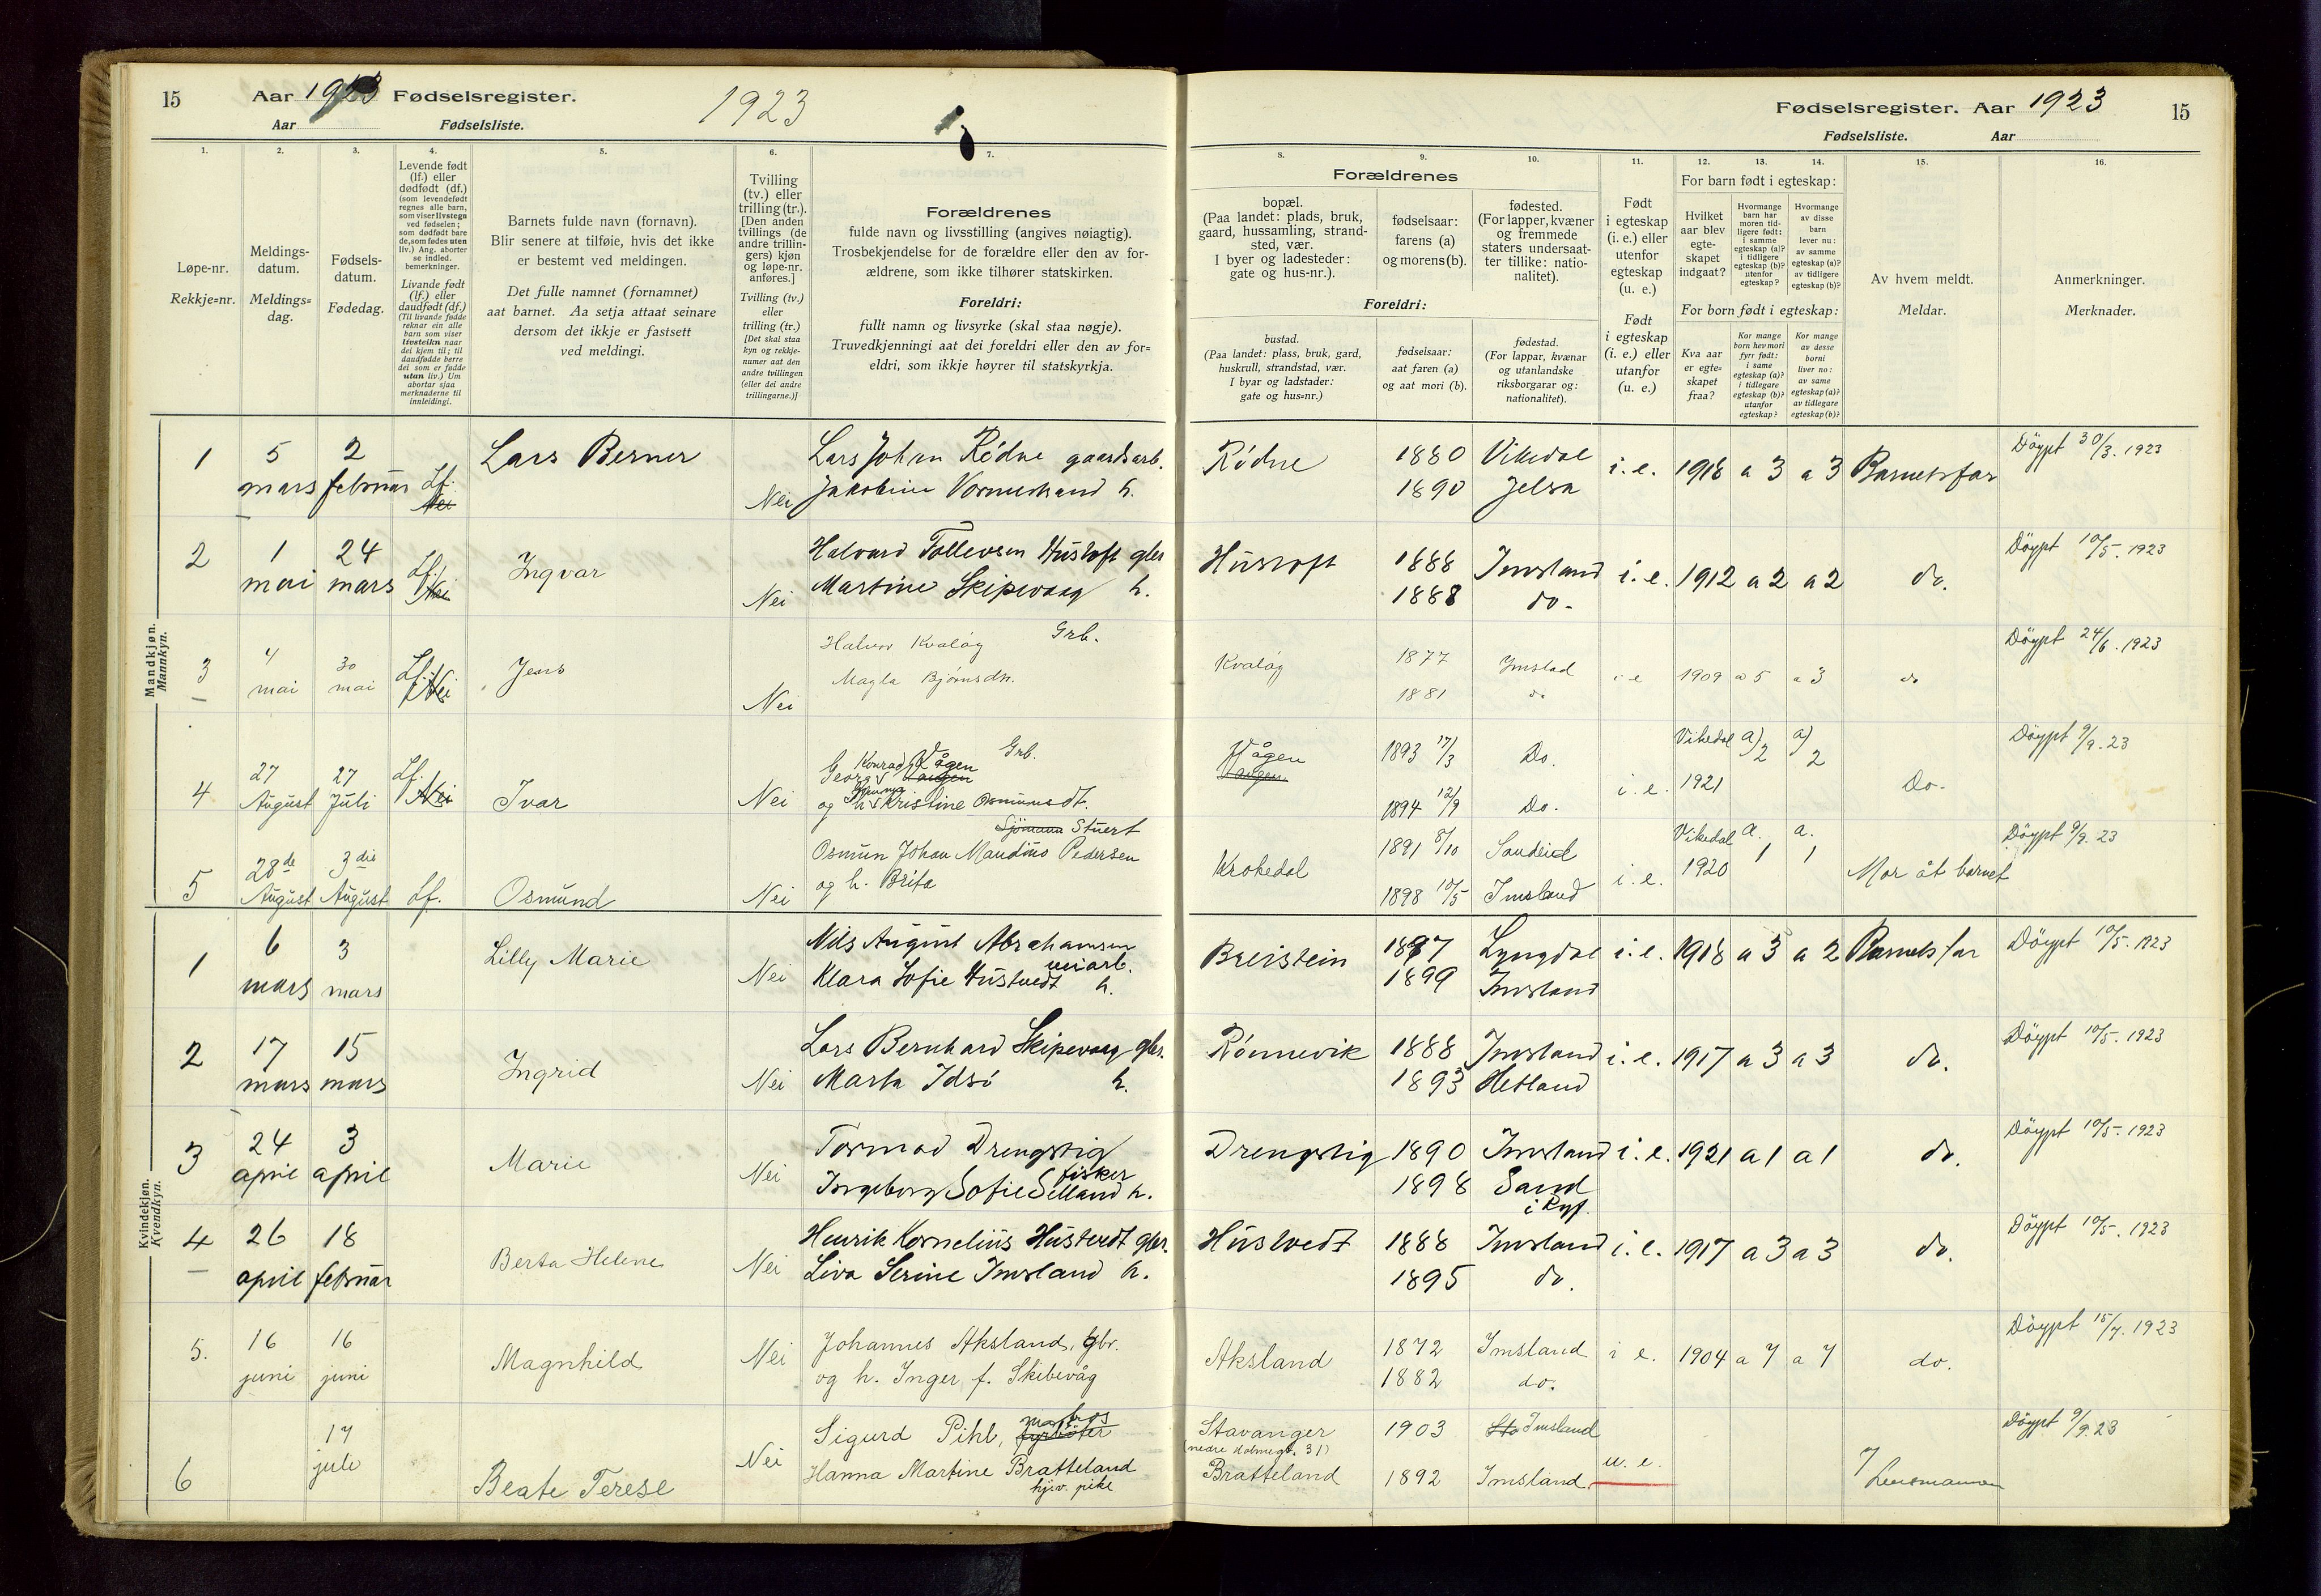 15 Aar 1923 Fødselsregister. 1923
Aar Fødselsliste.
Fødselsregister. Aar 1923 15
Fødselsliste. Aar
1. 2. 3. 4. 5. 6. 7.
Løpe-nr.
Rekkje=nr.
Meldings-
datum.
Meldings=
dag.
Fødsels-
datum.
Fødedag.
Levende født
(lf.) eller
dødfødt (df.)
(som levendefødt
regnes alle barn,
som viser livstegn
ved fødselen;
som dødfødt bare
de, som fødes uten
liv.) Ang. aborter
se indled.
bemerkninger.
Livande født
(lf.) eller
daudfødt (df.)
(Til livande fødde
reknar ein alle
barn som viser
livsteikn naar
dei kjem til; til
daudfødde berre
dei som er fødde
utan liv.) Um
abortar sjaa
merknaderne til
innleidingi.
Barnets fulde navn (fornavn).
Blir senere at tilføie, hvis det ikke
er bestemt ved meldingen.
Det fulle namnet (fornamnet)
aat barnet. Aa setja attaat seinare
dersom det ikkje er fastsett
ved meldingi.
Tvilling
(tv.) eller
trilling (tr.).
[Den anden
tvillings (de
andre trillin-
gers) kjøn
og løpe-nr.
anføres.]
Tvilling (tv.)
eller
trilling (tr.)
[Det skal staa
kyn og rekkje-
numer aat den
andre tvillingen
(eller dei andre
trillingarne.)]
Forældrenes
fulde navn og livsstilling (angives nøiagtig).
Trosbekjendelse for de forældre eller den av for-
ældrene, som ikke tilhører statskirken.
Foreldri:
fullt namn og livsyrke (skal staa nøgje).
Truvedkjenningi aat dei foreldri eller den av for=
eldri, som ikkje høyrer til statskyrkja.
8. 9. 10. 11. 12. 13. 14. 15. 16.
Forældrenes
bopæl.
(Paa landet: plads, bruk,
gaard, hussamling, strand-
sted, vær.
I byer og ladesteder:
gate og hus-nr.).
fødselsaar:
farens (a)
og morens (b).
fødested.
(For lapper, kvæner
og fremmede
staters undersaat-
ter tillike: natio-
nalitet).
Foreldri:
bustad.
(Paa landet: plass, bruk, gard,
huskrull, strandstad, vær.
I byar og ladstader:
gate og hus=nr.)
fødselsaar:
aat faren (a)
og aat mori (b).
fødestad.
(For lappar, kvænar
og utanlandske
riksborgarar og:
nationalitet).
Født
i egteskap
(i. e.) eller
utenfor
egteskap
(u. e.)
Født
i egteskap
(i. e.) eller
utanfor
(u. e.)
For barn født i egteskap:
Hvilket
aar blev
egte-
skapet
indgaat?
Hvormange
barn har
moren tid-
ligere født:
i samme
egteskap (a)?
i tidligere
egteskap (b)?
utenfor
egteskap?
Hvormange
av disse
barn
lever nu:
av samme
egteskap (a)?
av tidligere
egteskap (b)?
For born født i egteskap:
Kva aar
er egte=
skapet
fraa?
Kor mange
born hev mori
fyrr født:
i same
egteskap (a)?
i tidlegare
egteskap (b)?
utanfor
egteskap?
Kor mange
av desse
borni
liver no:
av same
egteskap (a)?
av tidlegare
egteskap (b)?
Av hvem meldt.
Meldar.
Anmerkninger.
Merknader.
Mandkjøn.
Mannkyn.
1 5 mars 2 februar Lf. Nei Lars Berner Nei
Lars Johan Rødne gaardsarb.
Jakobine Vormestrand h.
Rødne 1880 Vikedal i. e. 1918 a 3 a 3 Barnets far Döypt 30/3. 1923
1890 Jelsa
2 1 mai 24 mars Lf. Nei Ingvar Nei
Halvard Tollevsen Hustoft gbr
Martine Skipevaag h.
Hustoft 1888 Imsland i. e. 1912 a 2 a 2 do. Döypt 10/5. 1923
1888 do.
3 4 mai 30 mai Lf. Nei Jens Nei
Halvor Kvaløy Grb.
Magla Bjørnsdn.
Kvaløy 1877 Imslad i e 1909 a 5 a 3 do Döypt 24/6. 1923
1881 do
4 27 August 27 Juli Lf. Nei Ivar Nei
Georg Konrad Vågen Grb.
og h. Kristine Osmundsdt.
Vågen 1893 17/3 Do. i. e. Vikedal 1921 a) 2 a) 2 Do. Döypt 9/9. 23
1894 12/9 Do.
5 28de August 3die August Lf. Osmund Nei
Sjömann Stuert
Osmun Johan Maudino Pedersen
og h. Brita
Krokedal 1891 8/10 Sandeid i. e. Vikedal 1920 a. 1 a. 1 Mor åt barnet Döypt 9/9. 23
1898 10/5 Imsland
Kvindekjøn.
Kvendkyn.
1 6 mars 3 mars Lilly Marie Nei
Nils August Abrahamsen
veiarb.
Klara Sofie Hustvedt h.
Breistein 1897 Lyngdal i. e. 1918 a 3 a 2 Barnets far Döypt 10/5. 1923
1899 Imsland
2 17 mars 15 mars Ingrid Nei
Lars Bernhard Skipevaag gbr.
Marta Idsö h.
Rønnevik 1888 Imsland i. e. 1917 a 3 a 3 do. Döypt 10/5. 1923
1893 Hetland
3 24 april 3 april Marie Nei
Tormod Drengstig
fisker
Ingeborg Sofie Selland h.
Drengstig 1890 Imsland i. e. 1921 a 1 a 1 do. Döypt 10/5. 1923
1898 Sand
i Ryf.
4 26 april 18 februar Berta Helene Nei
Henrik Kornelius Hustvedt gbr.
Liva Serine Imsland h.
Hustvedt 1888 Imsland i. e. 1917 a 3 a 3 do. Döypt 10/5. 1923
1895 do.
5. 16 juni 16 juni Magnhild Nei
Johannes Aksland, gbr.
og h. Inger f. Skibevåg
Aksland 1872 Imsland i e. 1904 a 7 a 7 do. Döypt 15/7. 1923
1882 do.
6 17 juli Beate Terese Nei
Sigurd Pihl, fyrböter
Hanna Martine Bratteland
hjv. pike
Stavanger 1903 Imsland u. e. Lensmannen Döypt 9/9. 23
Bratteland 1892 Imsland